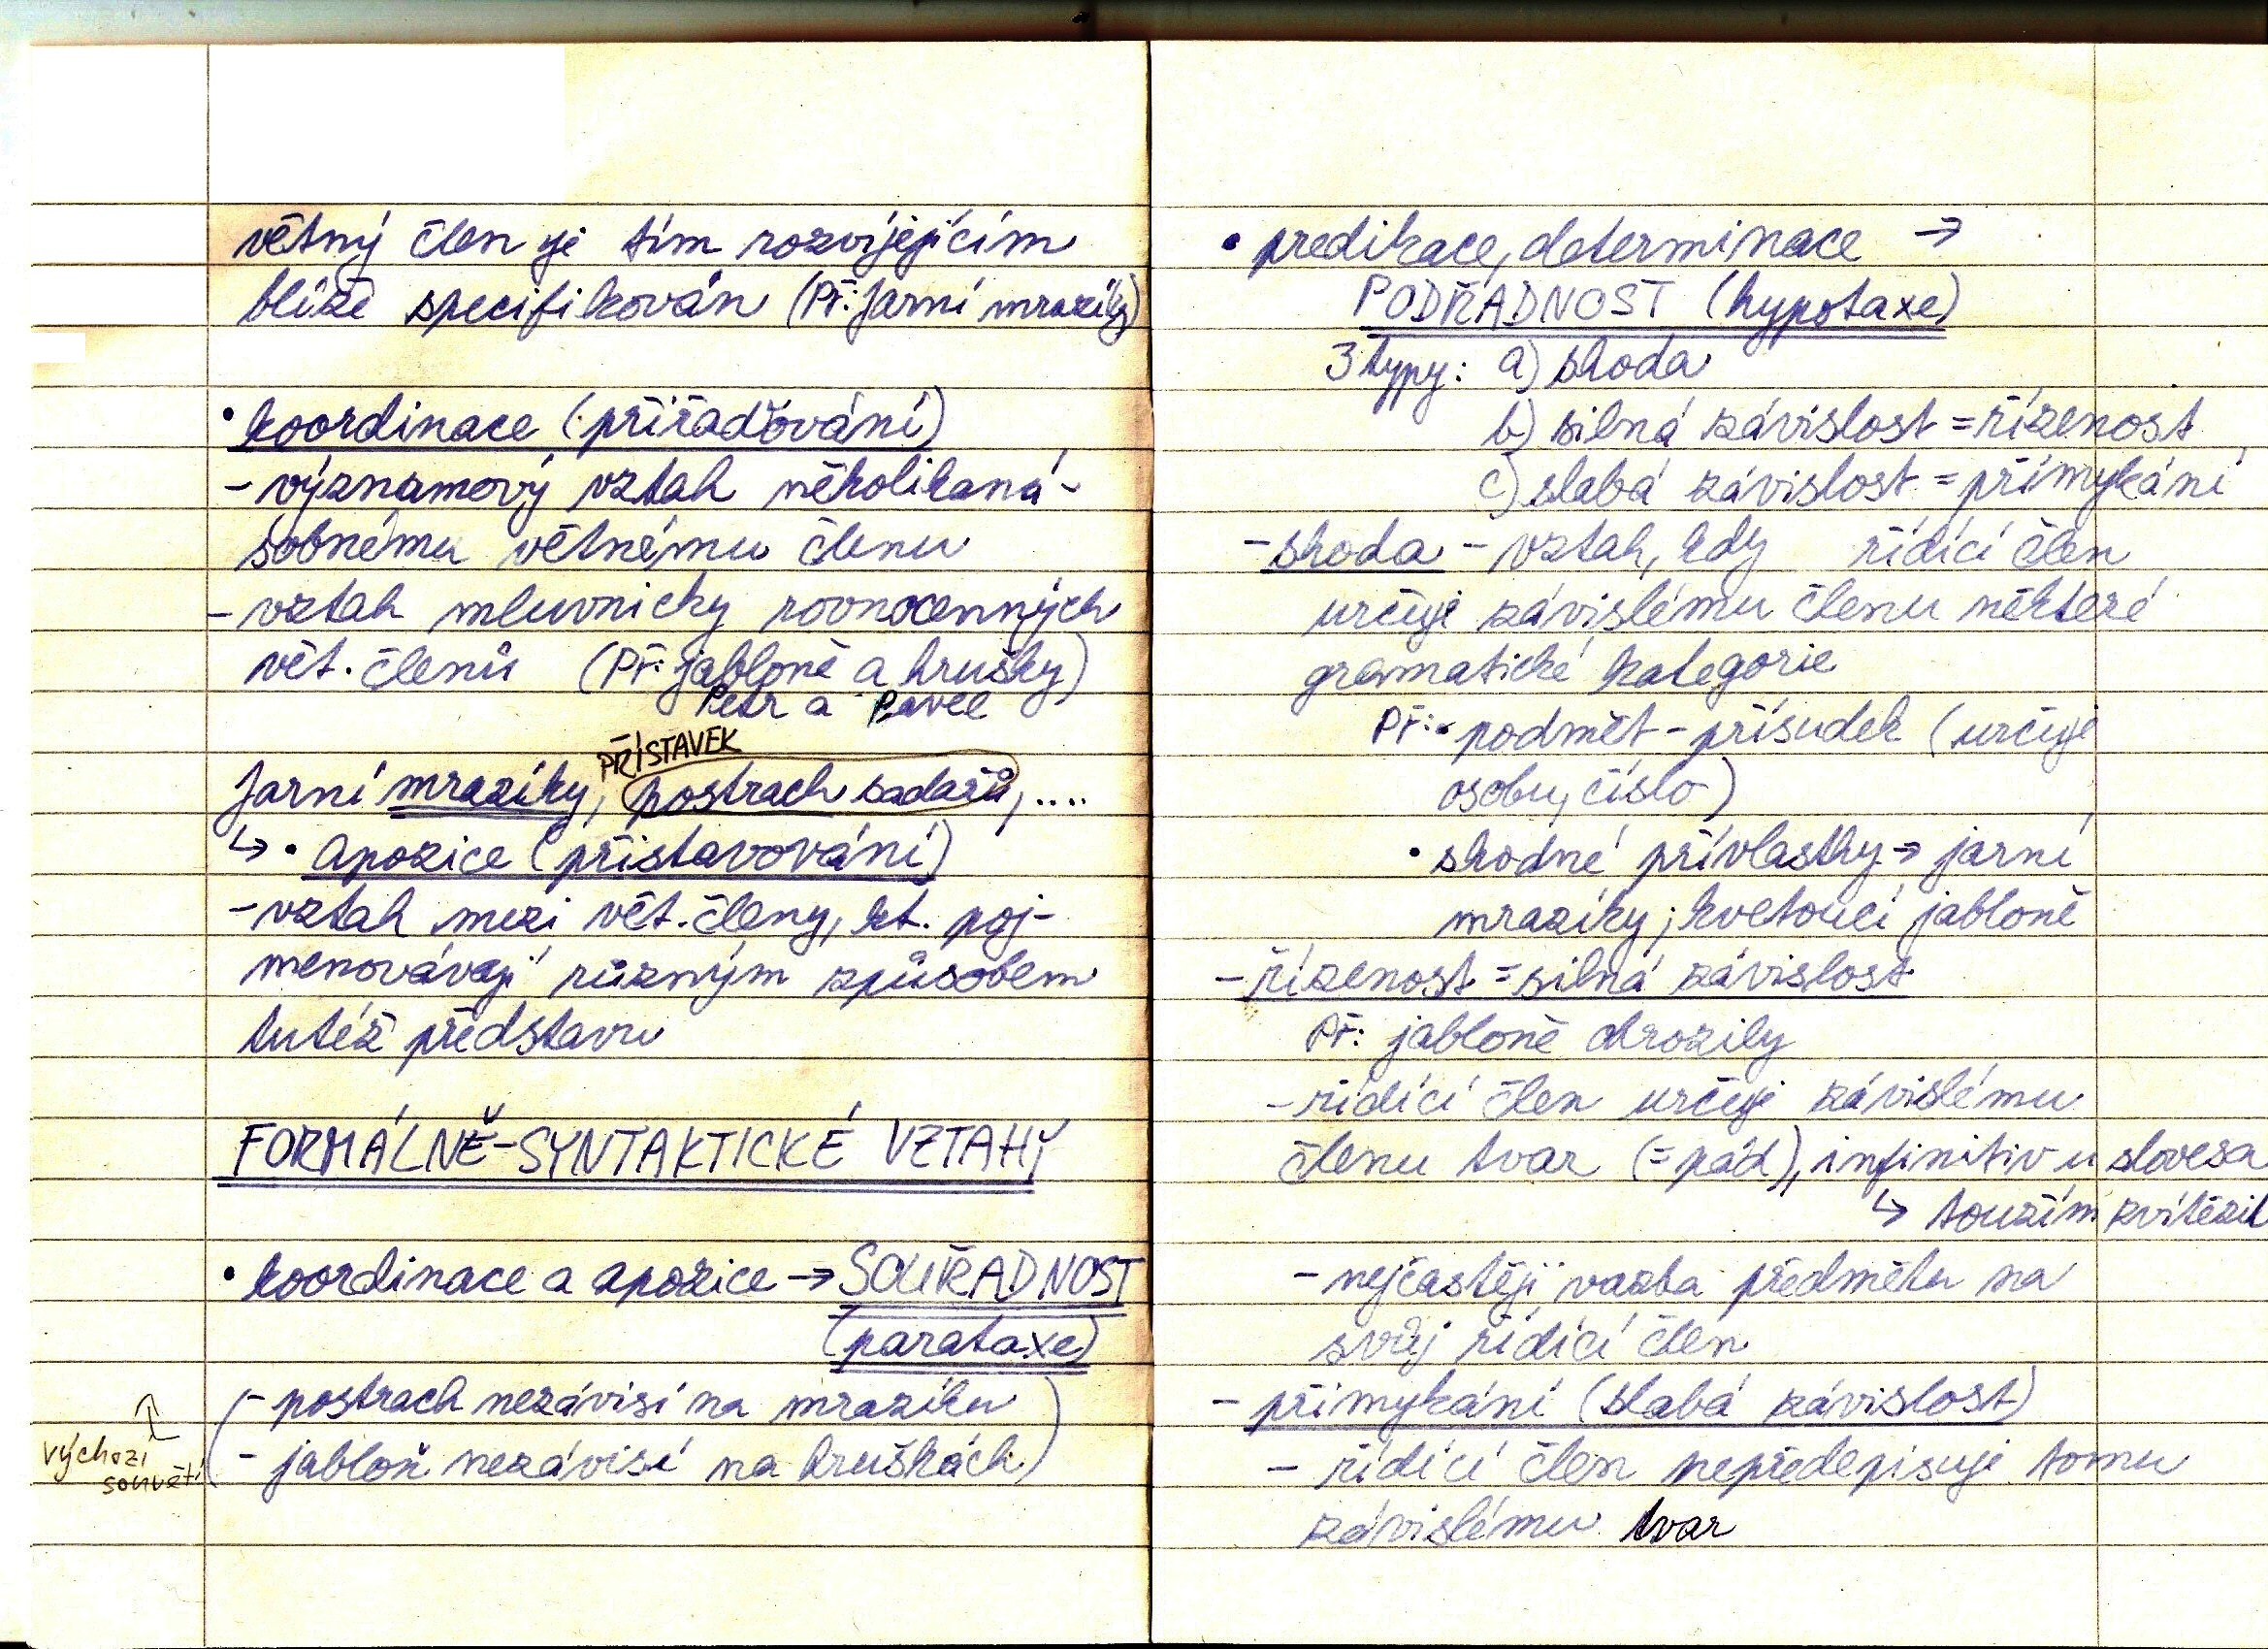 větný člen je tím rozvíjejícím
blíže specifikován (Př: Jarní mrazíky)
• koordinace (přiřaďování)
- významový vztah několikaná-
sobnému větnému členu
- vztah mluvnicky rovnocenných
vět. členů (Př: jabloně a hrušky)
Petr a Pavel
PŘÍSTAVEK
Jarní mrazíky, postrach sadařů, ....
↳ • apozice (přistavování)
- vztah mezi vět. členy, kt. poj-
menovávají různým způsobem
tutéž představu
FORMÁLNĚ-SYNTAKTICKÉ VZTAHY
• koordinace a apozice → SOUŘADNOST
(parataxe)
(- postrach nezávisí na mrazíku
- jabloň nezávisí na hruškách)
výchozí
souvětí
• predikace, determinace →
PODŘADNOST (hypotaxe)
3 typy: a) shoda
b) silná závislost = řízenost
c) slabá závislost = přimykání
- shoda - vztah, kdy řídící člen
určuje závislému členu některé
gramatické kategorie
Př: • podmět - přísudek (určuje
osobu, číslo)
• shodné přívlastky → jarní
mrazíky; kvetoucí jabloně
- řízenost = silná závislost
Př: jabloně ohrozily
- řídící člen určuje závislému
členu tvar (= pád), infinitiv u slovesa
↳ toužím zvítězit
- nejčastěji vazba předmětu na
svůj řídící člen
- přimykání (slabá závislost)
- řídící člen nepředepisuje tomu
závislému tvar